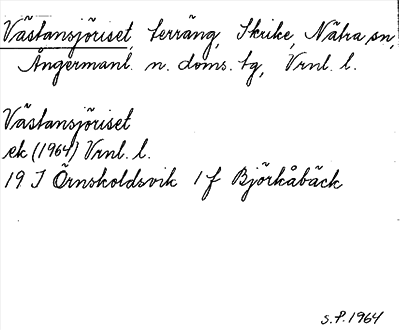 Västansjöriset, terräng, Skrike, Nätra sn,
Ångermanl. n. doms. tg, Vrnl. l.
Västansjöriset
ek (1964) Vrnl. l.
19 J Örnskoldsvik 1 f Björkåbäck
S.P. 1964